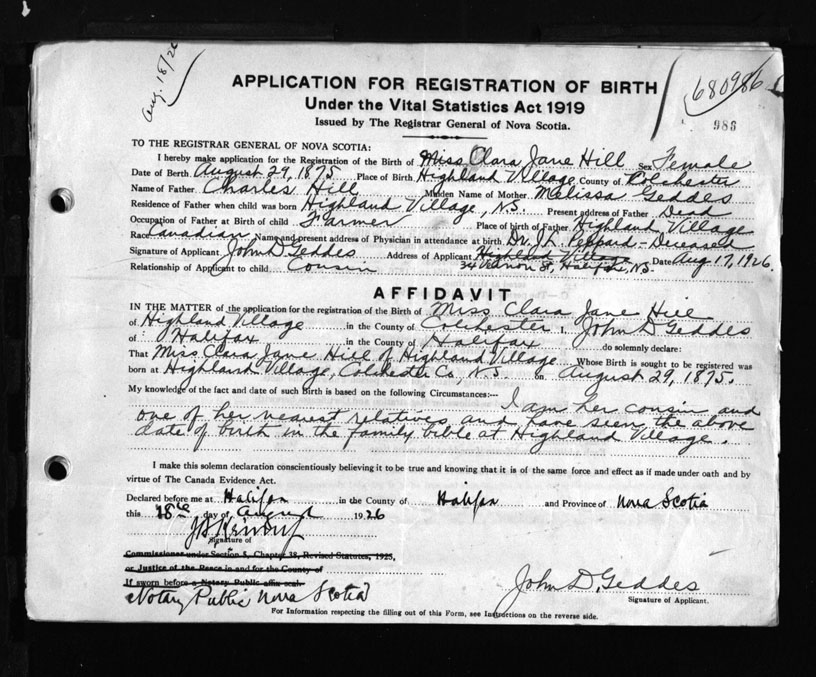 Aug. 18/26
680986
986
APPLICATION FOR REGISTRATION OF BIRTH
Under the Vital Statistics Act 1919
Issued by The Registrar General of Nova Scotia.
TO THE REGISTRAR GENERAL OF NOVA SCOTIA:
I hereby make application for the Registration of the Birth of Miss Clara Jane Hill Sex Female
Date of Birth August 29, 1875 Place of Birth Highland Village County of Colchester
Name of Father Charles Hill Maiden Name of Mother Melissa Geddes
Residence of Father when child was born Highland Village, N.S. Present address of Father Dead
Occupation of Father at Birth of child Farmer Place of birth of Father Highland Village
Race Canadian Name and present address of Physician in attendance at birth Dr. J.L. Peppard - Deceased
Signature of Applicant John D Geddes Address of Applicant Highland Village Date Aug 17, 1926.
Relationship of Applicant to child Cousin 34 Vernon St, Halifax, N.S.
AFFIDAVIT
IN THE MATTER of the application for the registration of the Birth of Miss Clara Jane Hill
of Highland Village in the County of Colchester I, John D Geddes
of Halifax in the County of Halifax do solemnly declare:
That Miss Clara Jane Hill of Highland Village Whose Birth is sought to be registered was
born at Highland Village, Colchester Co, N.S. on August 29, 1875.
My knowledge of the fact and date of such Birth is based on the following Circumstances:—
I am her cousin and
one of her nearest relatives and have seen the above
date of birth in the family bible at Highland Village.
I make this solemn declaration conscientiously believing it to be true and knowing that it is of the same force and effect as if made under oath and by
virtue of The Canada Evidence Act.
Declared before me at Halifax in the County of Halifax and Province of Nova Scotia
this 18th day of August 1926
Signature of
Commissioner under Section 8, Chapter 38, Revised Statutes, 1923,
or Justice of the Peace in and for the County of
If sworn before a Notary Public affix seal.
Notary Public Nova Scotia
John D. Geddes
Signature of Applicant.
For Information respecting the filling out of this Form, see Instructions on the reverse side.